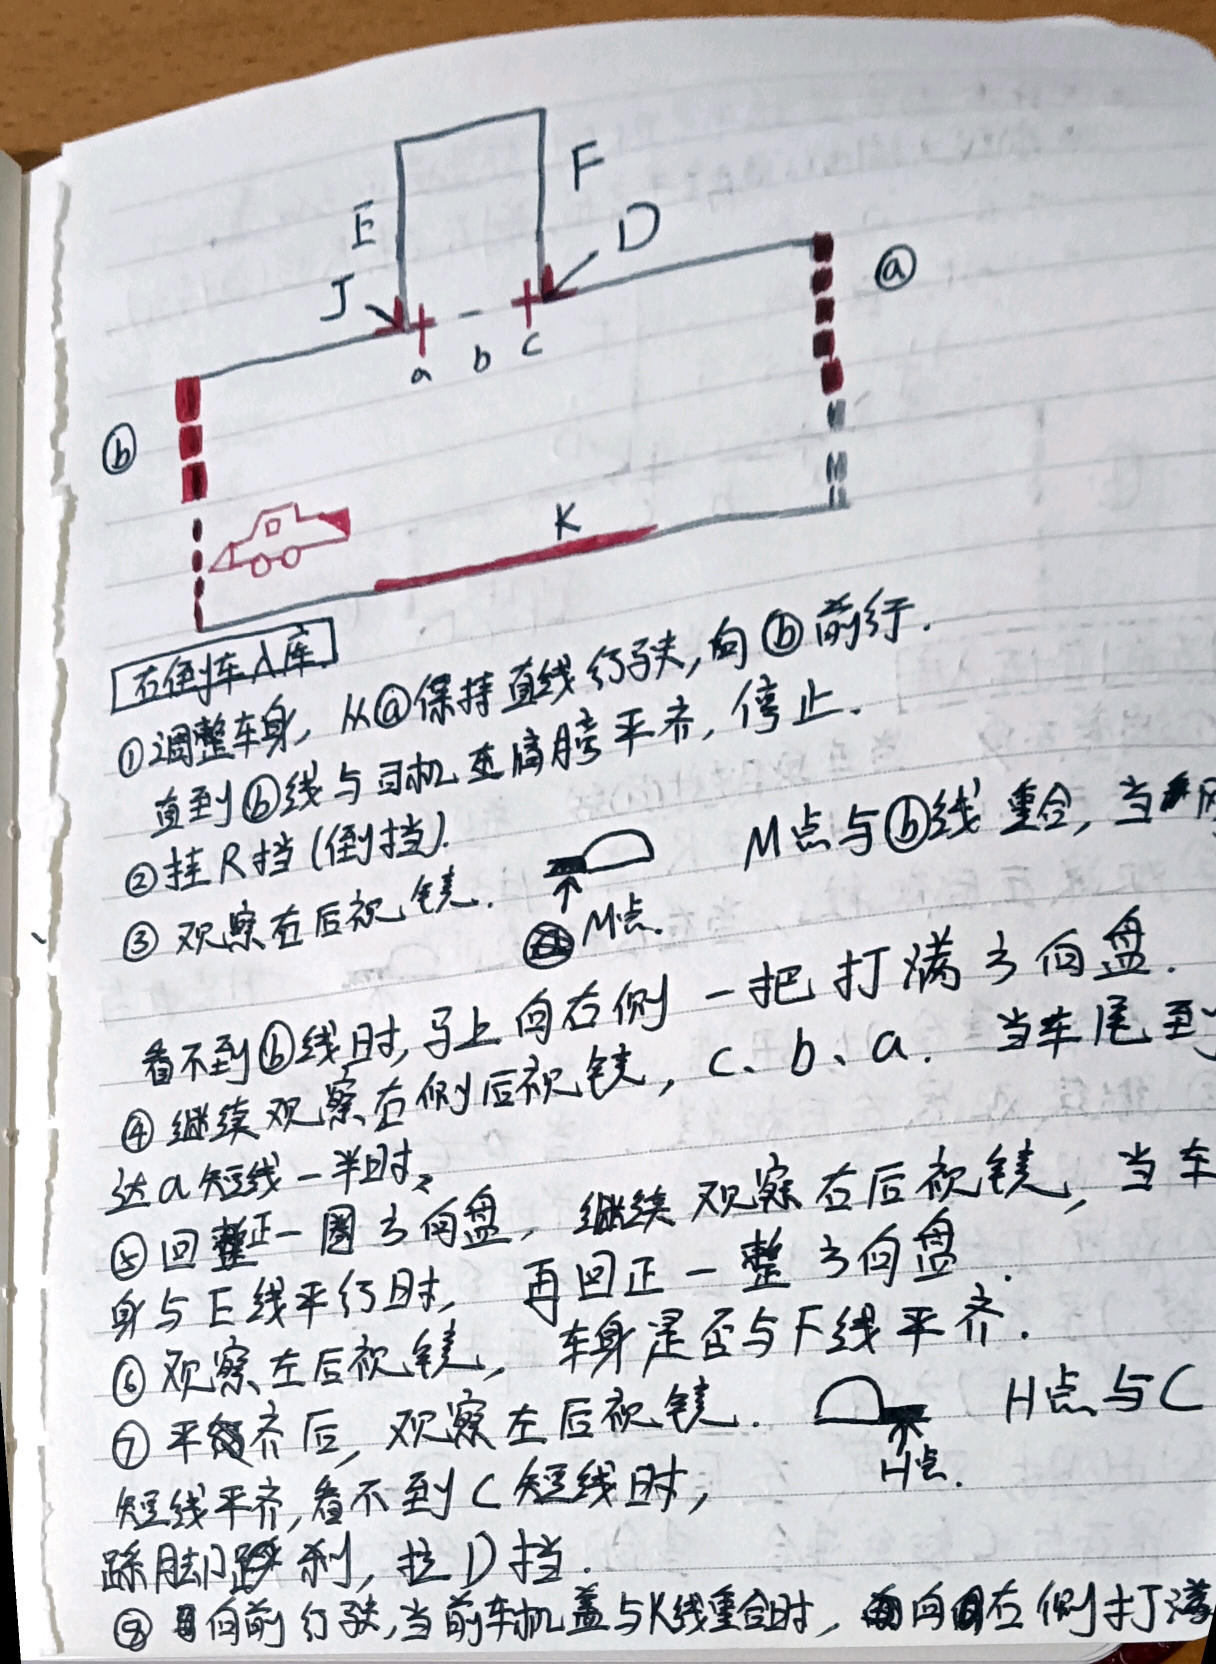 F
E
D
J
ⓐ
a
b
c
ⓑ
K
右倒车入库
①调整车身，从ⓐ保持直线行驶，向ⓑ前行.
直到ⓑ线与司机左肩膀平齐，停止.
②挂R挡(倒挡).
③观察右后视镜. M点与ⓑ线重合，当
M点.
看不到ⓑ线时，马上向右侧一把打满方向盘.
④继续观察右侧后视镜，c、b、a. 当车尾到
达a短线一半时，
⑤回整正一圈方向盘，继续观察右后视镜，当车
身与E线平行时，再回正一整方向盘.
⑥观察左后视镜，车身是否与F线平齐.
⑦平齐后，观察左后视镜. H点与C
H点.
短线平齐，看不到C短线时，
踩脚刹，挂D挡.
⑧向前行驶，当前车机盖与K线重合时，向右侧打满